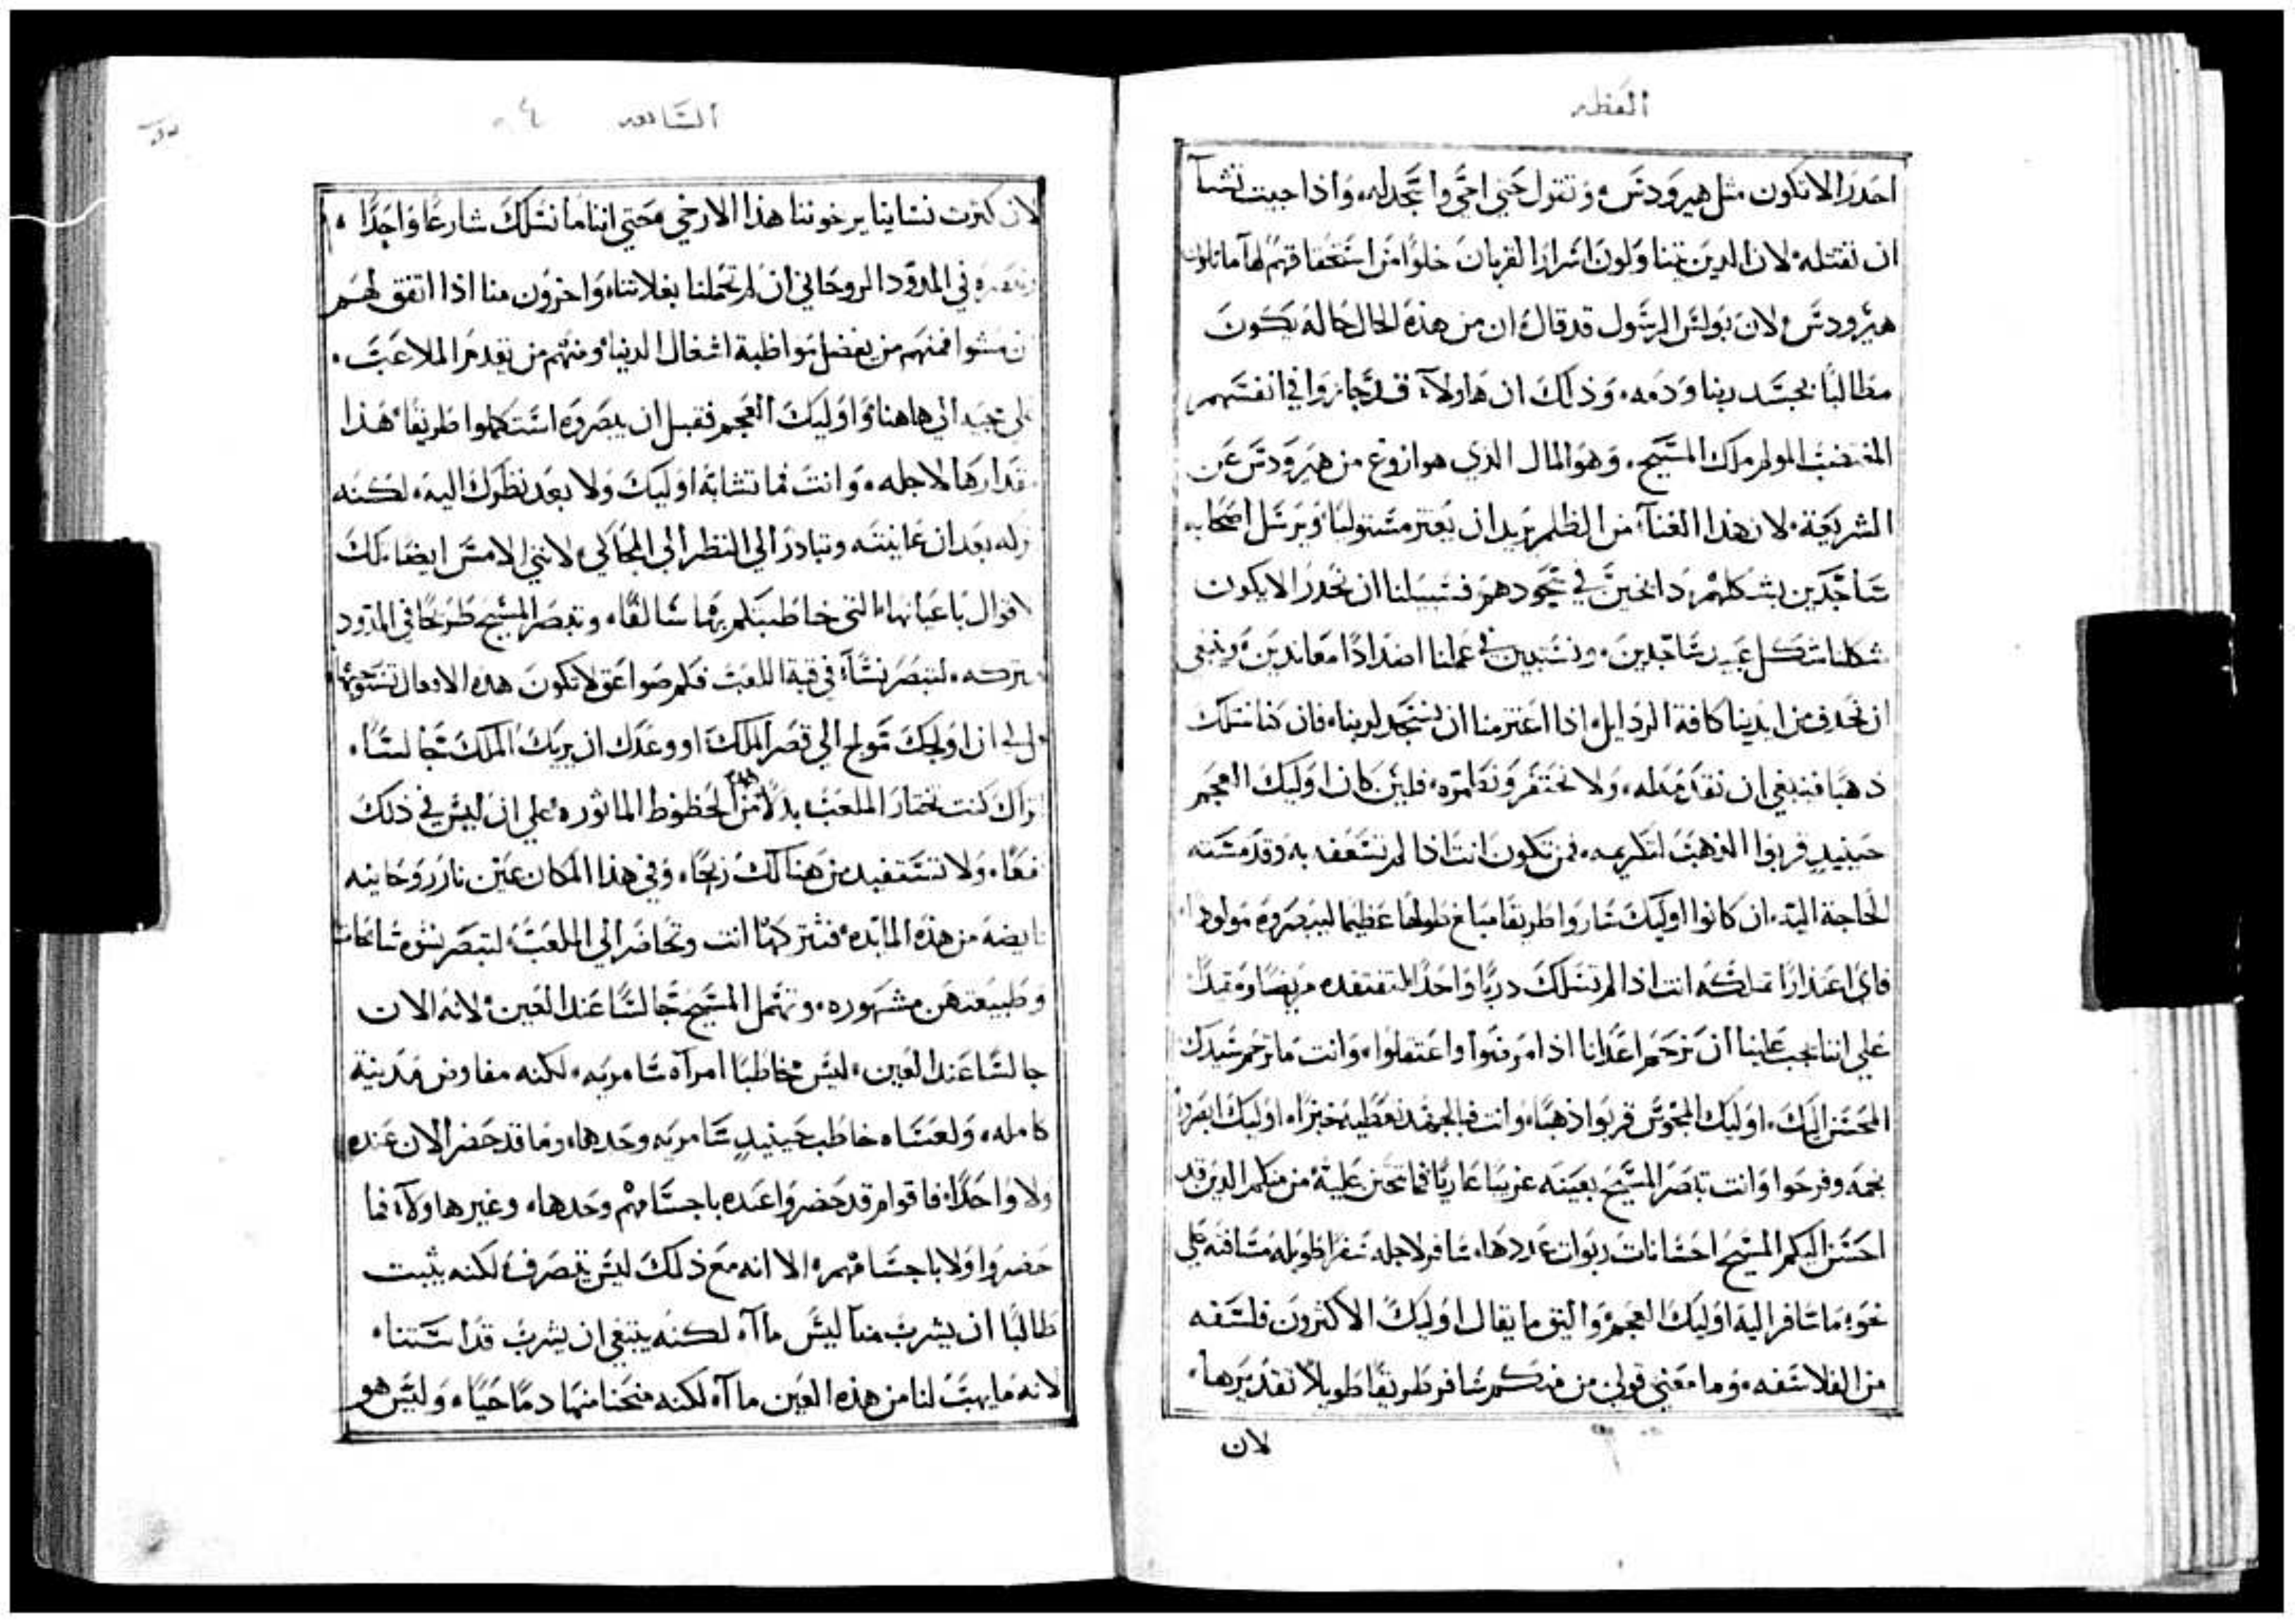 العظه
احدر الا تكون مثل هيرودس وتقول حتي اجي وا سجد له واذا جيت تشا
ان تقتله لان الذين يتناولون اسرار القربان خلوا من استحقاقهم لها ماثلون
هيرودس لان بولس الرسول قد قال ان من هذه الحال حاله يكون
مطالبا بجسد ربنا ودمه وذلك ان هاولاء قد جازوا في انفسهم
المغتصب المولم ملك المسيح وهو المال الذي هو ازوغ من هيرودس عن
الشريعة لان هذا الغنا من الظلم يريد ان يعتز مستوليا ويرسل اصحابه
ساجدين بشكلهم دابحين في سجودهم فسبيلنا ان نحدر الا يكون
شكلنا شكل عبيد ساجدين ونستبين في عملنا اضدادا معاندين وينبغي
ان نحدف من ايدينا كافة الردايل اذا اعتزمنا ان نسجد لربنا فان كنا نملك
ذهبا فينبغي ان نقدمه له ولا نحتقر ونطمره فلين كان اوليك العجم
حينيد قربوا الذهب لتكريمه فمن تكون انت اذا لم تسعفه به وقد مسته
الحاجة اليه ان كانوا اوليك ساروا طريقا مبلغ طولها عظيما ليبصروه مولودا
فاي اعتذارا تملكه انت اذا لم تسلك دربا واحدا لتفتقده مريضا ومقيدا
علي اننا يجب علينا ان نرحم اعدانا اذا مرضوا واعتقلوا وانت ما ترحم سيدك
المحسن اليك اوليك المجوس قربوا ذهبا وانت فبالجهد تعطيه خبزا اوليك ابصروا
نجمه وفرحوا وانت تبصر المسيح بعينه غريبا عاريا فما تحنن عليه من منكم الدين قد
احسن اليكم المسيح احسانات ربوات عددها سافر لاجله سفرا طويله مسافته علي
نحو ما سافر اليه اوليك العجم واليق ما يقال اوليك الاكثرون فلسفه
من الفلاسفه وما معني قولي من منكم سافر طريقا طويلا تقديرها
لان
السابعه
لان كثرت نساينا يرخوننا هذا الارخي حتي اننا ما نسلك شارعا واحدا
ونبصره في المدود الروحاني ان لم تحملنا بغلاتنا واخرون منا اذا اتفق لهم
ان مشوا فمنهم من يفضل مواظبة اشغال الدنيا ومنهم من يقدم الملاعب
علي مجيه الي هاهنا واوليك العجم فقبل ان يبصروه استكملوا طريقا هذا
مقدارها لاجله وانت فما تشابه اوليك ولا بعد نظرك اليه لكنه
تتركه بعد ان عاينته وتبادر الي النظر الي المحاكي لانني الامس ايضا بتلك
الاقوال باعيانها التي خاطبتكم بها سالفا وتبصر المسيح طريحا في المدود
وتتركه لتبصر نسآ في قبة اللعب فكم صواعق لا تكون هده الافعال تستوجبها
قل لي ان اولجك مولج الي قصر الملك او وعدك ان يريك الملك جالسا
تراك كنت تختار الملعب بدلا من الحظوظ الماثوره علي ان ليس في ذلك
نفعا ولا تستفيد من هنالك ربحا وفي هذا المكان عين نار روحانيه
فايضه من هذه المايده فتتركها انت وتحاضر الي الملعب لتبصر نسوه سابحات
وطبيعتهن مشهوره وتهمل المسيح جالسا عند العين لانه الان
جالسا عند العين ليس مخاطبا امرآه سامريه لكنه مفاوض مدينة
كامله ولعساه خاطب حينيد سامريه وحدها وما قد حضر الان عنده
ولا واحدا فاقوام قد حضروا عنده باجسامهم وحدها وغير هاولآ فما
حضروا ولا باجسامهم الا انه مع ذلك ليس ينصرف لكنه يثبت
طالبا ان يشرب منا ليس ماآ لكنه ينبغي ان يشرب قداستنا
لانه ما يهب لنا من هذه العين ماآ لكنه منحنا منها دما حيا وليس هو